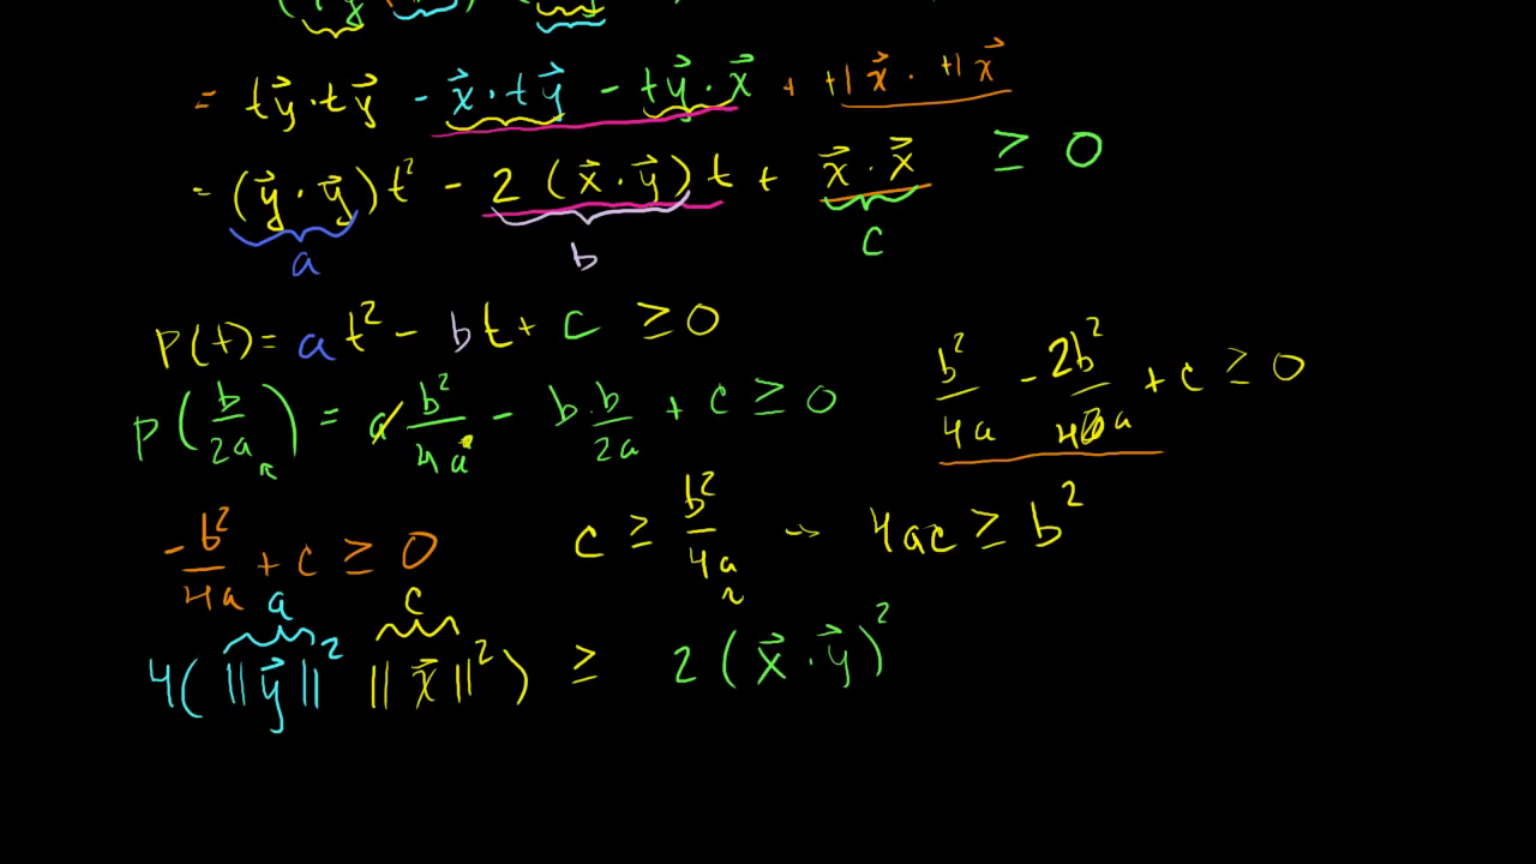 = ty⃗·ty⃗ - x⃗·ty⃗ - ty⃗·x⃗ + +1x⃗ · +1x⃗
= (y⃗·y⃗)t² - 2(x⃗·y⃗)t + x⃗·x⃗ ≥ 0
a b c
P(t) = at² - bt + c ≥ 0
P(b/2a) = a b²/4a - b·b/2a + c ≥ 0
b²/4a - 2b²/4a + c ≥ 0
-b²/4a + c ≥ 0
c ≥ b²/4a → 4ac ≥ b²
a c
4(||y⃗||² ||x⃗||²) ≥ 2(x⃗·y⃗)²